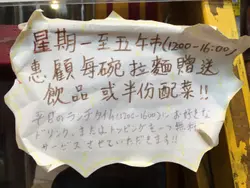 星期一至五午市(1200-16:00)
惠顧每碗拉麵贈送
飲品 或半份配菜!!
平日のランチタイム(1200-16:00)にお好きな
ドリンク、またはトッピングを一つ無料
サービス させていただきます!!